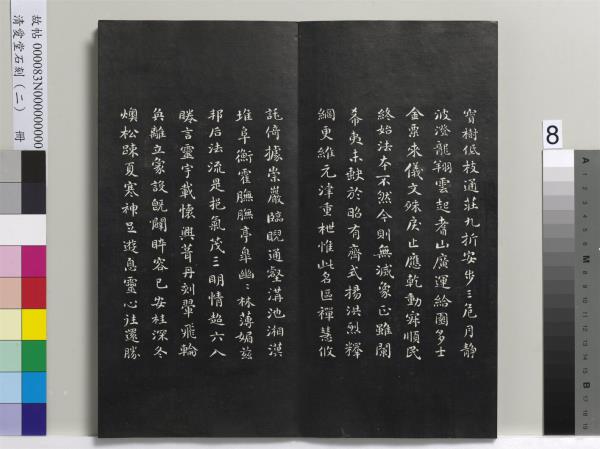 寶樹低枝通莊九折安步三危川靜
波澄龍翔雲起耆山廣運給園多士
金粟來儀文殊戾止應乾動寂順民
終始法本不然今則無滅象正雖闌
希夷未缺於昭有齊式揚洪烈釋
網更維元津重枻惟此名區禪慧攸
託倚據崇巖臨睨通壑溝池湘漢
堆阜衡霍膴膴亭皋幽〻林薄媚茲
邦后法流是挹氣茂三明情超六入
眷言靈宇載懷興葺丹刻翬飛輪
奐離立象設既闢睟容已安桂深冬
燠松疎夏寒神足遊息靈心往還勝
故帖 000083N000000000
清愛堂石刻（二） 冊
8
A
M
B